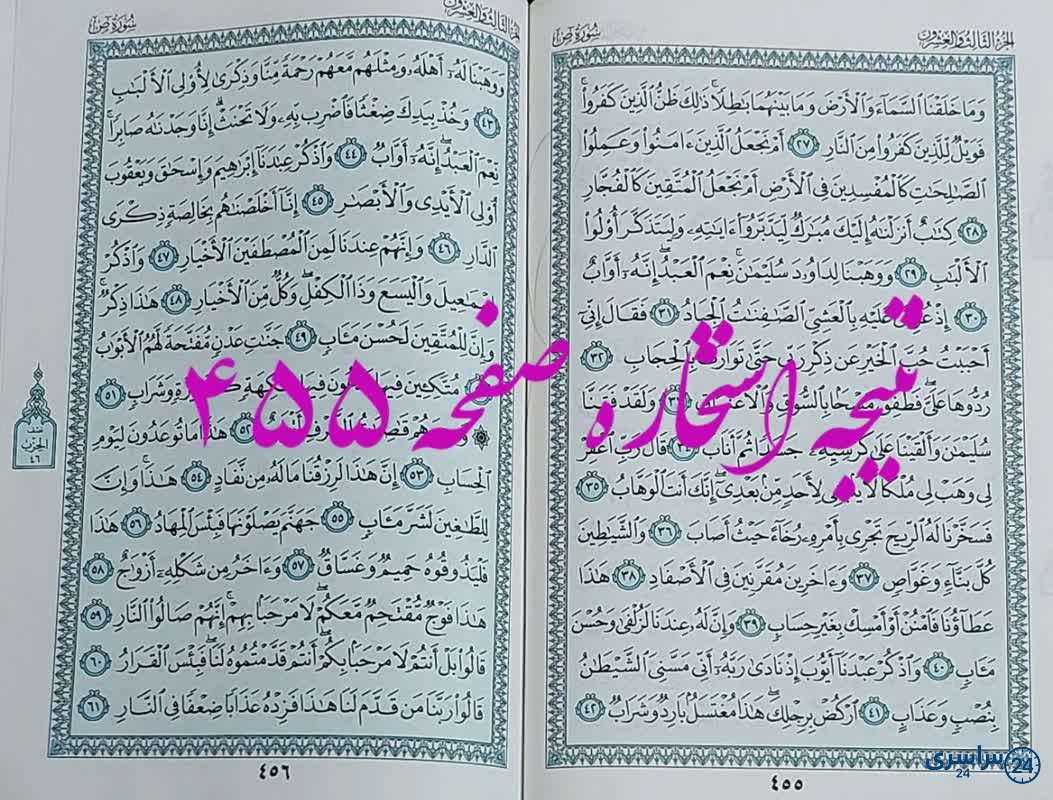 الجزء الثالث والعشرون
سورة ص
وَمَا خَلَقْنَا ٱلسَّمَآءَ وَٱلْأَرْضَ وَمَا بَيْنَهُمَا بَٰطِلًا ۚ ذَٰلِكَ ظَنُّ ٱلَّذِينَ كَفَرُوا۟ ۚ
فَوَيْلٌ لِّلَّذِينَ كَفَرُوا۟ مِنَ ٱلنَّارِ ٢٧ أَمْ نَجْعَلُ ٱلَّذِينَ ءَامَنُوا۟ وَعَمِلُوا۟
ٱلصَّٰلِحَٰتِ كَٱلْمُفْسِدِينَ فِى ٱلْأَرْضِ أَمْ نَجْعَلُ ٱلْمُتَّقِينَ كَٱلْفُجَّارِ
٢٨ كِتَٰبٌ أَنزَلْنَٰهُ إِلَيْكَ مُبَٰرَكٌ لِّيَدَّبَّرُوٓا۟ ءَايَٰتِهِۦ وَلِيَتَذَكَّرَ أُو۟لُوا۟
ٱلْأَلْبَٰبِ ٢٩ وَوَهَبْنَا لِدَاوُۥدَ سُلَيْمَٰنَ ۚ نِعْمَ ٱلْعَبْدُ ۖ إِنَّهُۥٓ أَوَّابٌ
٣٠ إِذْ عُرِضَ عَلَيْهِ بِٱلْعَشِىِّ ٱلصَّٰفِنَٰتُ ٱلْجِيَادُ ٣١ فَقَالَ إِنِّىٓ
أَحْبَبْتُ حُبَّ ٱلْخَيْرِ عَن ذِكْرِ رَبِّى حَتَّىٰ تَوَارَتْ بِٱلْحِجَابِ ٣٢
رُدُّوهَا عَلَىَّ ۖ فَطَفِقَ مَسْحًۢا بِٱلسُّوقِ وَٱلْأَعْنَاقِ ٣٣ وَلَقَدْ فَتَنَّا
سُلَيْمَٰنَ وَأَلْقَيْنَا عَلَىٰ كُرْسِيِّهِۦ جَسَدًا ثُمَّ أَنَابَ ٣٤ قَالَ رَبِّ ٱغْفِرْ
لِى وَهَبْ لِى مُلْكًا لَّا يَنۢبَغِى لِأَحَدٍ مِّنۢ بَعْدِىٓ ۖ إِنَّكَ أَنتَ ٱلْوَهَّابُ ٣٥
فَسَخَّرْنَا لَهُ ٱلرِّيحَ تَجْرِى بِأَمْرِهِۦ رُخَآءً حَيْثُ أَصَابَ ٣٦ وَٱلشَّيَٰطِينَ
كُلَّ بَنَّآءٍ وَغَوَّاصٍ ٣٧ وَءَاخَرِينَ مُقَرَّنِينَ فِى ٱلْأَصْفَادِ ٣٨ هَٰذَا
عَطَآؤُنَا فَٱمْنُنْ أَوْ أَمْسِكْ بِغَيْرِ حِسَابٍ ٣٩ وَإِنَّ لَهُۥ عِندَنَا لَزُلْفَىٰ وَحُسْنَ
مَـَٔابٍ ٤٠ وَٱذْكُرْ عَبْدَنَآ أَيُّوبَ إِذْ نَادَىٰ رَبَّهُۥٓ أَنِّى مَسَّنِىَ ٱلشَّيْطَٰنُ
بِنُصْبٍ وَعَذَابٍ ٤١ ٱرْكُضْ بِرِجْلِكَ ۖ هَٰذَا مُغْتَسَلٌۢ بَارِدٌ وَشَرَابٌ ٤٢
٤٥٥
الجزء الثالث والعشرون
سورة ص
وَوَهَبْنَا لَهُۥٓ أَهْلَهُۥ وَمِثْلَهُم مَّعَهُمْ رَحْمَةً مِّنَّا وَذِكْرَىٰ لِأُو۟لِى ٱلْأَلْبَٰبِ
٤٣ وَخُذْ بِيَدِكَ ضِغْثًا فَٱضْرِب بِّهِۦ وَلَا تَحْنَثْ ۗ إِنَّا وَجَدْنَٰهُ صَابِرًا ۚ
نِّعْمَ ٱلْعَبْدُ ۖ إِنَّهُۥٓ أَوَّابٌ ٤٤ وَٱذْكُرْ عِبَٰدَنَآ إِبْرَٰهِيمَ وَإِسْحَٰقَ وَيَعْقُوبَ
أُو۟لِى ٱلْأَيْدِى وَٱلْأَبْصَٰرِ ٤٥ إِنَّآ أَخْلَصْنَٰهُم بِخَالِصَةٍ ذِكْرَى
ٱلدَّارِ ٤٦ وَإِنَّهُمْ عِندَنَا لَمِنَ ٱلْمُصْطَفَيْنَ ٱلْأَخْيَارِ ٤٧ وَٱذْكُرْ
إِسْمَٰعِيلَ وَٱلْيَسَعَ وَذَا ٱلْكِفْلِ ۖ وَكُلٌّ مِّنَ ٱلْأَخْيَارِ ٤٨ هَٰذَا ذِكْرٌ ۚ
وَإِنَّ لِلْمُتَّقِينَ لَحُسْنَ مَـَٔابٍ ٤٩ جَنَّٰتِ عَدْنٍ مُّفَتَّحَةً لَّهُمُ ٱلْأَبْوَٰبُ
٥٠ مُتَّكِـِٔينَ فِيهَا يَدْعُونَ فِيهَا بِفَٰكِهَةٍ كَثِيرَةٍ وَشَرَابٍ ٥١
۞ وَعِندَهُمْ قَٰصِرَٰتُ ٱلطَّرْفِ أَتْرَابٌ ٥٢ هَٰذَا مَا تُوعَدُونَ لِيَوْمِ
ٱلْحِسَابِ ٥٣ إِنَّ هَٰذَا لَرِزْقُنَا مَا لَهُۥ مِن نَّفَادٍ ٥٤ هَٰذَا ۚ وَإِنَّ
لِلطَّٰغِينَ لَشَرَّ مَـَٔابٍ ٥٥ جَهَنَّمَ يَصْلَوْنَهَا فَبِئْسَ ٱلْمِهَادُ ٥٦ هَٰذَا
فَلْيَذُوقُوهُ حَمِيمٌ وَغَسَّاقٌ ٥٧ وَءَاخَرُ مِن شَكْلِهِۦٓ أَزْوَٰجٌ ٥٨
هَٰذَا فَوْجٌ مُّقْتَحِمٌ مَّعَكُمْ ۖ لَا مَرْحَبًۢا بِهِمْ ۚ إِنَّهُمْ صَالُوا۟ ٱلنَّارِ ٥٩
قَالُوا۟ بَلْ أَنتُمْ لَا مَرْحَبًۢا بِكُمْ ۖ أَنتُمْ قَدَّمْتُمُوهُ لَنَا ۖ فَبِئْسَ ٱلْقَرَارُ ٦٠
قَالُوا۟ رَبَّنَا مَن قَدَّمَ لَنَا هَٰذَا فَزِدْهُ عَذَابًا ضِعْفًا فِى ٱلنَّارِ ٦١
نصف
الحزب
٤٦
٤٥٦
نتیجه استخاره صفحه ۴۵۵
سراسری 24
24